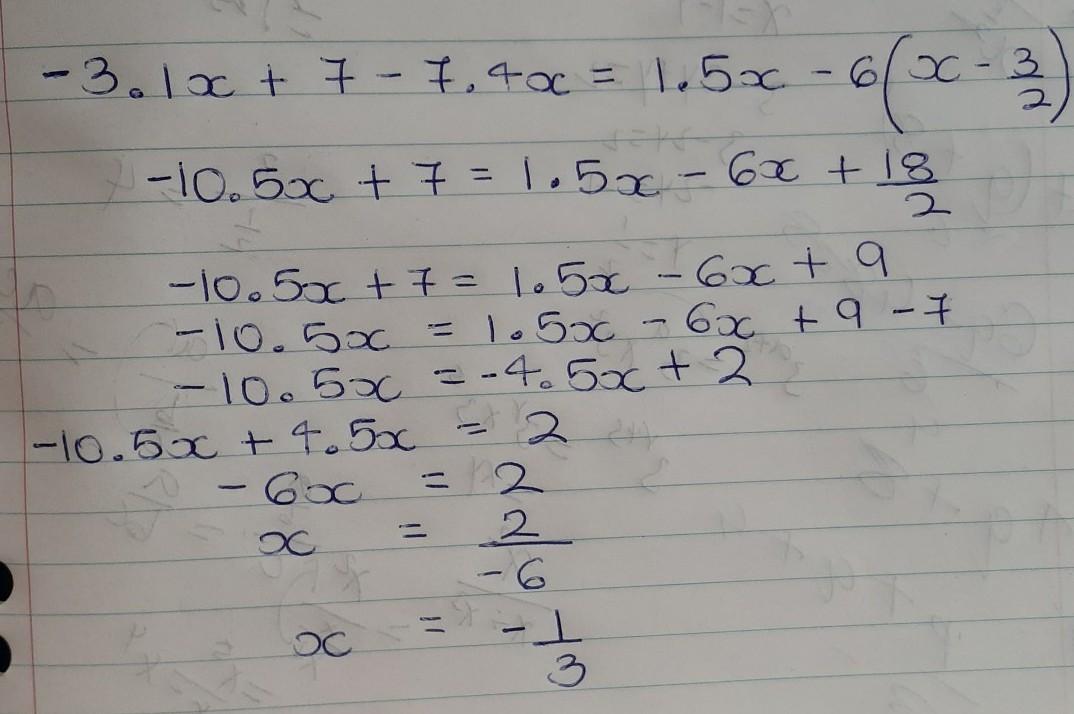 -3.1x + 7 - 7.4x = 1.5x - 6(x - 3/2)
-10.5x + 7 = 1.5x - 6x + 18/2
-10.5x + 7 = 1.5x - 6x + 9
-10.5x = 1.5x - 6x + 9 - 7
-10.5x = -4.5x + 2
-10.5x + 4.5x = 2
-6x = 2
x = 2/-6
x = -1/3